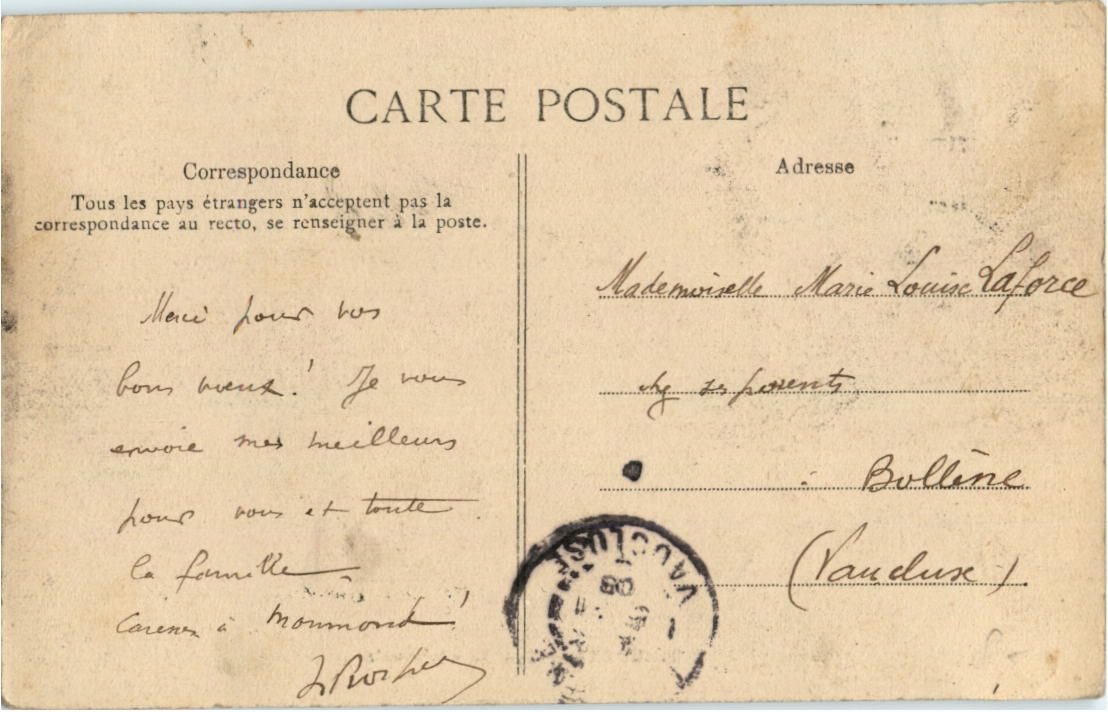 CARTE POSTALE
Correspondance
Tous les pays étrangers n'acceptent pas la
correspondance au recto, se renseigner à la poste.
Merci pour vos
bons vœux ! Je vous
envoie mes meilleurs
pour vous et toute
la famille
à
Adresse
Mademoiselle Marie Louise Laforce
chz ses parents
à Bollène
(Vaucluse).
VAUCLUSE